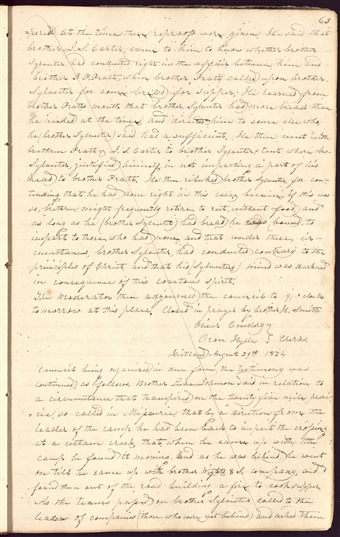 63
pared at the time then reproofs were given. he said that
brother J. S. Carter, came to him to know whether brother
Sylvester had conducted right in the affair between him and
brother P. P. Pratt, when brother Pratt called upon brother
Sylvester for some bread for supper; He learned from
brother Pratts words that brother Sylvester had more bread than
he needed at the time, and directed him to some else who,
he, brother Sylvester, said had a sufficient. He then went with
brothers Pratt & J. S. Carter to brother Sylvesters tent where bro.
Sylvester, justified himself, in not imparting a part of his
bread to brother Pratt. He then rebuked brother Sylvester for con-
tending that he had done right in this case, because, if this was
so, brethren might frequently retire to rest, without food, and
as long as he (brother Sylvester) had bread, he was bound to
impart to those who had none, and that under these cir-
cumstances, brother Sylvester had conducted contrary to the
principles of Christ, and that his (Sylvesters) mind was darkened
in consequence of this covetous spirit.
The Moderator then adjourned the council to 9 o clock
tomorrow at this place. Closed in prayer by brother H. Smith
Oliver Cowdery
Orson Hyde } Clerks
Kirtland August 29th 1834
Council being organized in due form the testimony was
continued as follows: Brother Luke Johnson said in relation to
a circumstance that transpired on the twenty five mile prai-
rie, so called in Missouri, that by a direction from the
leader of the camp he had been back to inspect the crossing
at a certain creek, that, when he came up with the
camp he found it moving, and as he was behind he went
on till he came up with brother company, and
found them out of the road building a fire to cook supper.
As the teams passed on brother Sylvester called to the
leaders of companies (those who were yet behind) and asked them